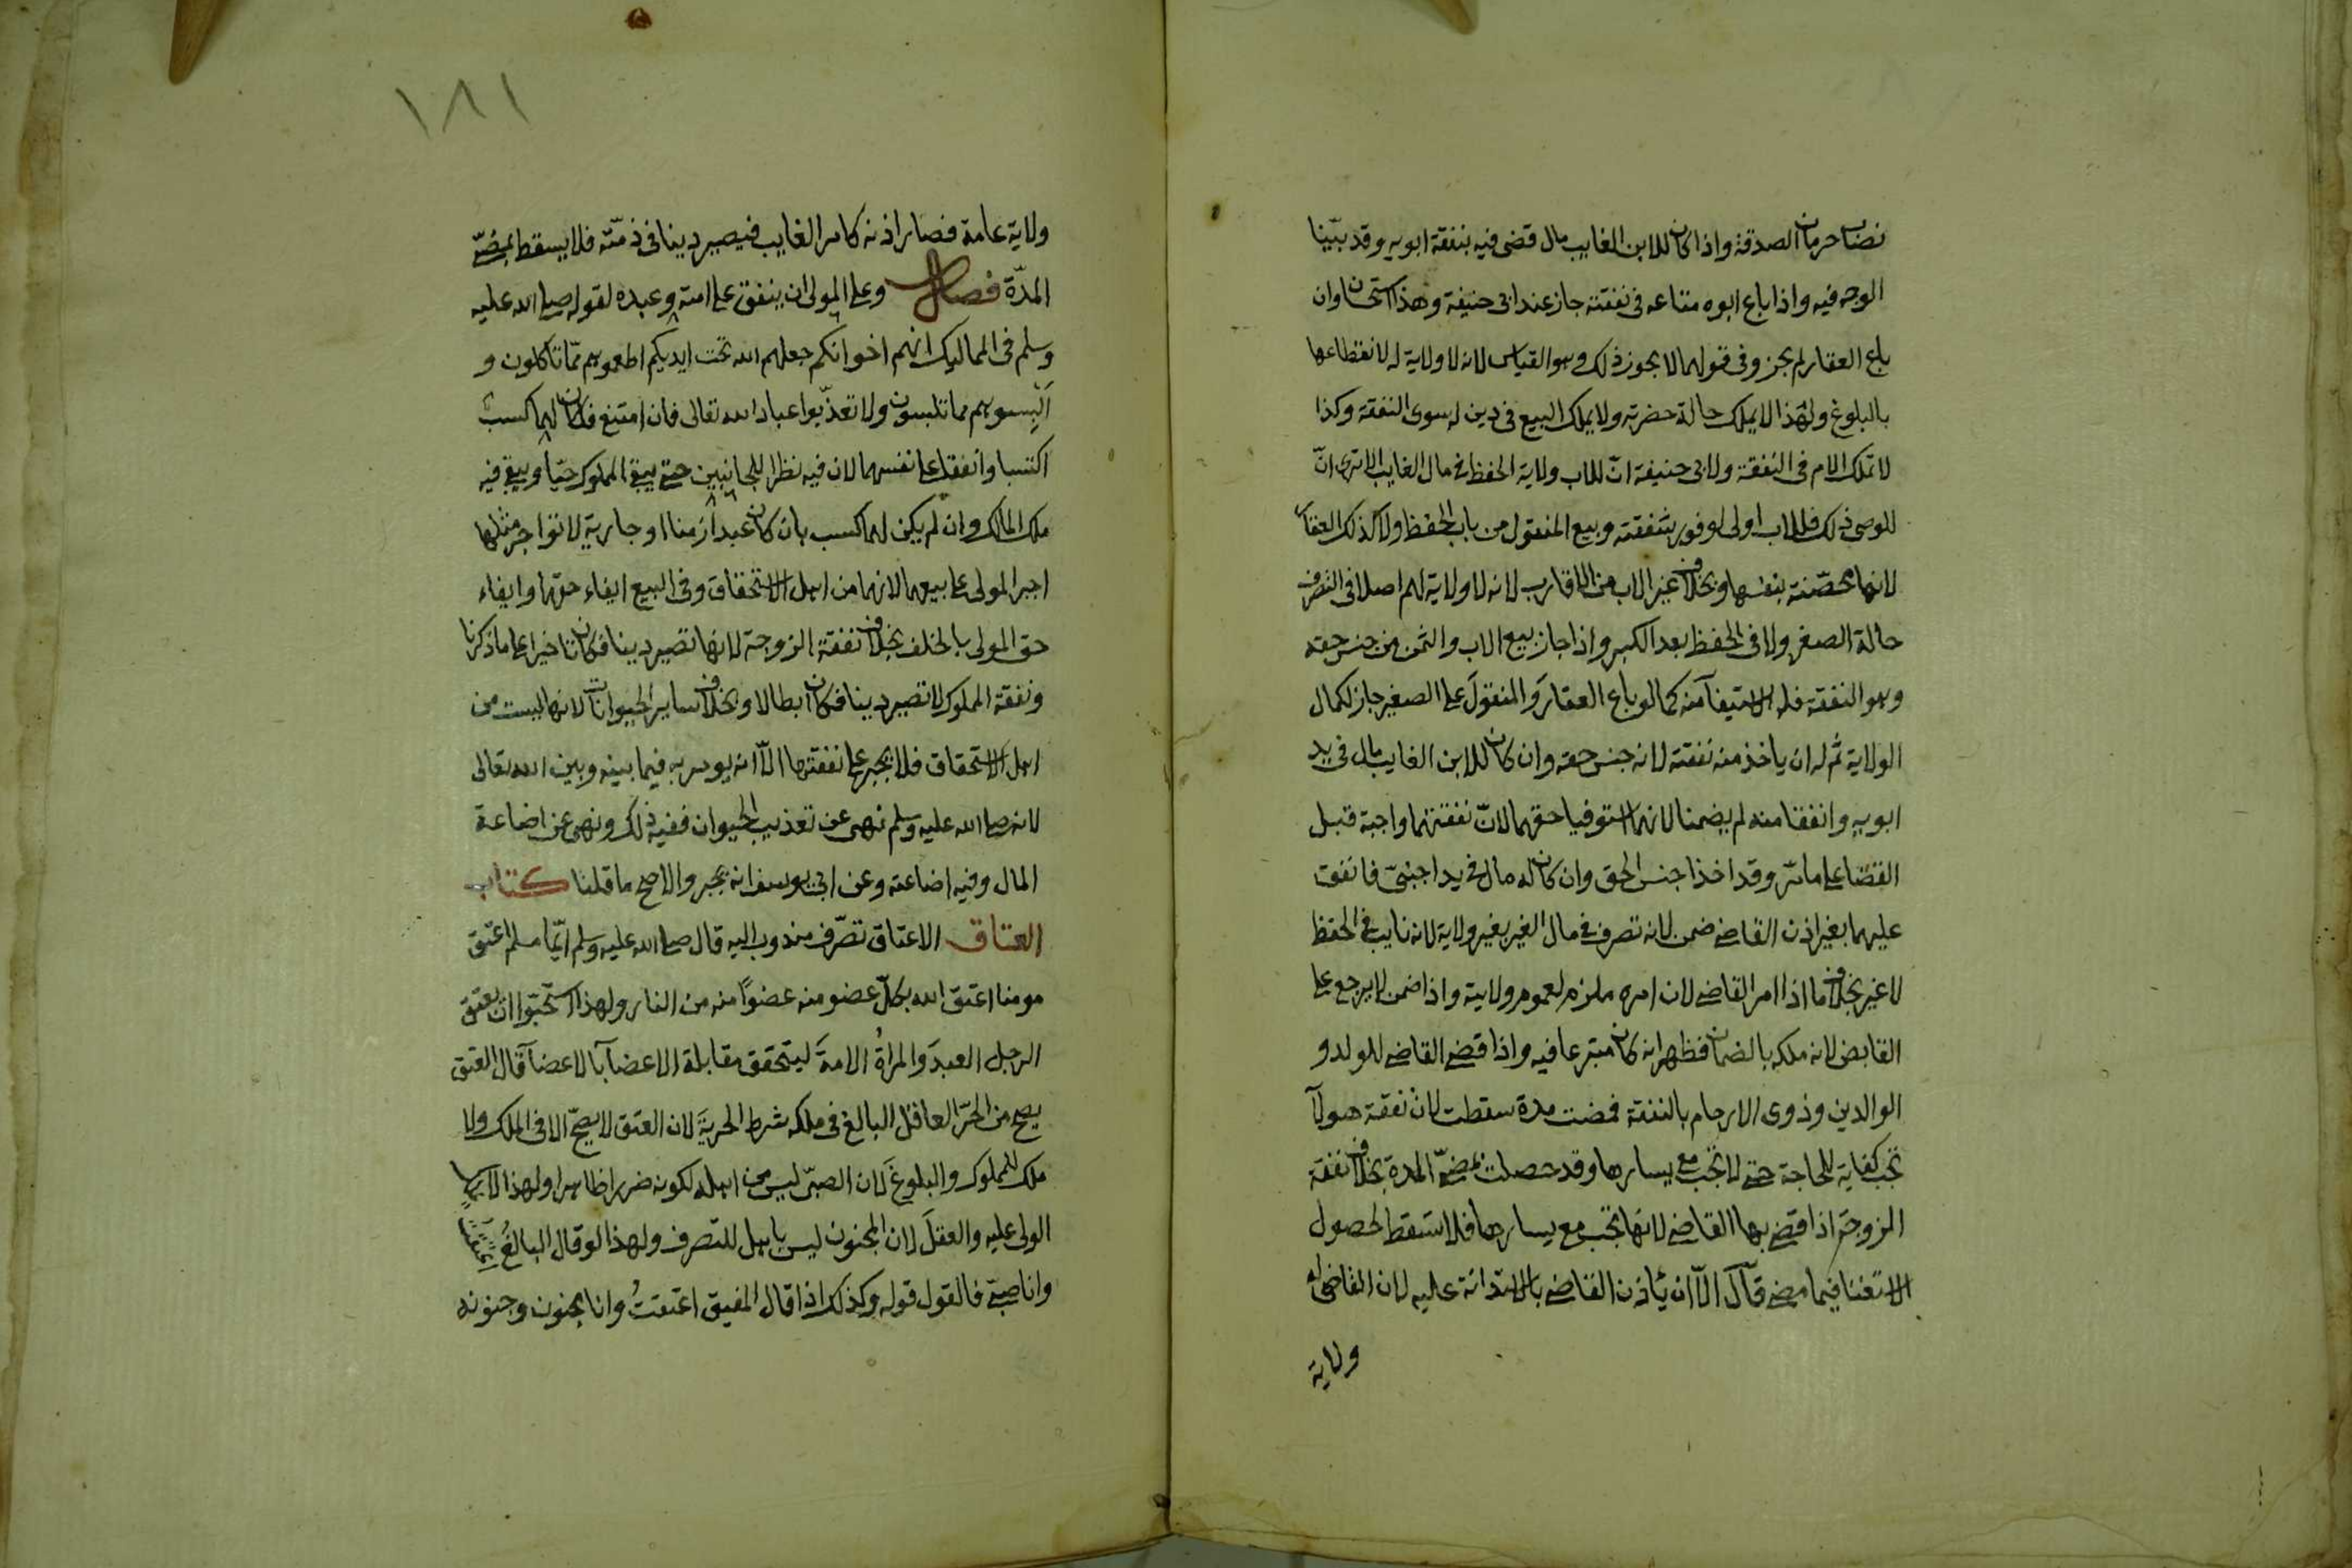 نصاب حرمان الصدقة واذا كان للابن الغايب مال قضى فيه بنفقة ابويه وقد بيّنا
الوجه فيه واذا باع ابوه متاعه فى نفقته جاز عند ابى حنيفة وهذا استحسان وان
باع العقار لم يجز وفى قولهما لا يجوز ذلك وهو القياس لانه لا ولاية له لانقطاعها
بالبلوغ ولهذا لا يملك حالة حضرته ولا يملك البيع فى دين له سوى النفقة وكذا
لا تملك الام فى النفقة ولابى حنيفة انّ للاب ولاية الحفظ فى مال الغايب الا ترى انّ
للوصى ذلك فللاب اولى لوفور شفقته وبيع المنقول من باب الحفظ ولا كذلك العقار
لانها محصّنة بنفسها وبخلاف غير الاب من الاقارب لانه لا ولاية لهم اصلا فى التصرف
حالة الصغر ولا فى الحفظ بعد الكبر واذا جاز بيع الاب والثمن من جنس حقه
وهو النفقة فله الاستيفآ منه كما لو باع العقارَ والمنقولَ على الصغير جاز لكمال
الولاية ثم له ان ياخذ منه نفقته لانه جنس حقه وان كان للابن الغايب مال فى يد
ابويه وانفقا منه لم يضمنا لانهما استوفيا حقهما لانّ نفقتهما واجبة قبل
القضا على ما مرّ وقد اخذا جنس الحق وان كان له مال فى يد اجنبىّ فانفق
عليهما بغير اذن القاضى ضمن لانه تصرف فى مال الغير بغير ولاية لانه نايب فى الحفظ
لا غير بخلاف ما اذا امر القاضى لان امره ملزم لعموم ولايته واذا ضمن لا يرجع على
القابض لانه ملكه بالضمان فظهر انه كان متبرعا فيه واذا قضى القاضى للولد و
الوالدين وذوى الارحام بالنفقة فمضت مدة سقطت لان نفقة هولآ
تجب كفاية للحاجة حتى لا تجب مع يسارها وقد حصلت بمضىّ المدة بخلاف نفقة
الزوجة اذا قضى بها القاضى لانها تجب مع يسارها فلا تسقط لحصول
الاستغنا فيما مضى قآل الّا ان يأذن القاضى بالاستدانة عليه لان القاضى له
ولاية
١٨١
ولاية عامة فصار اذنه كامر الغايب فيصير دينا فى ذمّته فلا يسقط بمضىّ
المدّة فصل وعلى المولى ان ينفق على امته وعبده لقوله صلى الله عليه
وسلم فى المماليك انهم اخوانكم جعلهم الله تحت ايديكم اطعموهم ممّا تاكلون و
اَلبِسوهم مما تلبسون ولا تعذّبوا عباد الله تعالى فان امتنع فكان لهما كسب
اكتسبا وانفقا على انفسهما لان فيه نظرا للجانبين حتى يبقى المملوك حيّا ويبقى فيه
ملك المالك وان لم يكن لهما كسب بان كان عبدا زمنا او جارية لا تواجر مثلها
اجبر المولى على بيعهما لانهما من اهل الاستحقاق وفى البيع ايفاء حقهما وايفاء
حق المولى بالخلف بخلاف نفقة الزوجة لانها تصير دينا فكان تاخيرا على ما ذكرنا
ونفقة المملوك لا تصير دينا فكان ابطالا وبخلاف ساير الحيوانات لانها ليست من
اهل الاستحقاق فلا يجبر على نفقتها الّا انه يومر به فيما بينه وبين الله تعالى
لانه صلى الله عليه وسلم نهى عن تعذيب الحيوان ففيه ذلك ونهى عن اضاعة
المال وفيه اضاعته وعن ابى يوسف انه يجبر والاصح ما قلنا كتاب
العتاق الاعتاق تصّرف مندوب اليه قال صلى الله عليه وسلم ايّما مسلم اعتق
مومنا اعتق الله بكلّ عضو منه عضوًا منه من النار ولهذا استحبّوا ان يعتق
الرجل العبدَ والمراةُ الامةَ ليتحقق مقابلة الاعضآ بالاعضآ قال العتق
يصح من الحرّ العاقل البالغ فى ملكه شرط الحريةَ لان العتق لا يصحّ الا فى الملك ولا
ملك للمملوك والبلوغَ لان الصبىّ ليس من اهله لكونه ضررا ظاهرا ولهذا لا يملكه
الولى عليه والعقلَ لان المجنون ليس باهل للتصرف ولهذا لو قال البالغُ اعتقتُ
وانا صبىّ فالقول قوله وكذلك اذا قال المفيق اعتقتُ وانا مجنون وجنونه